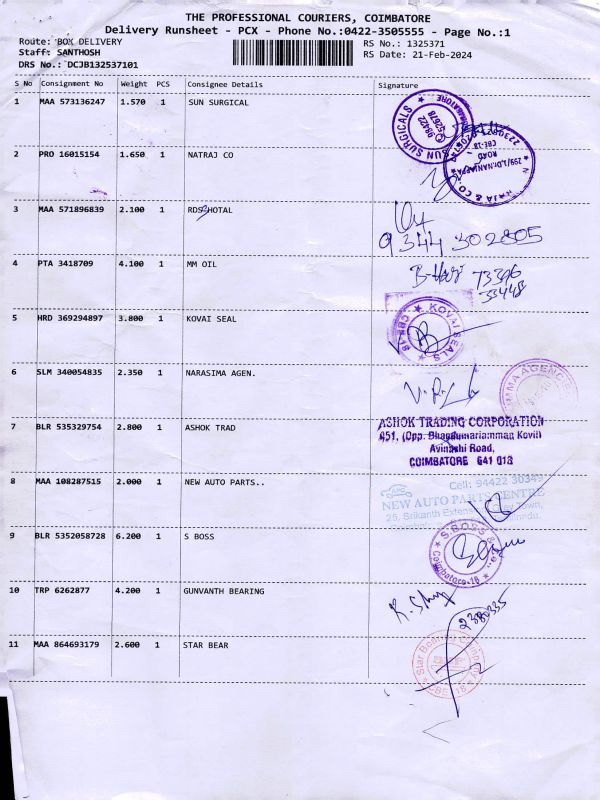 THE PROFESSIONAL COURIERS, COIMBATORE
Delivery Runsheet - PCX - Phone No.:0422-3505555 - Page No.:1
Route: BOX DELIVERY RS No.: 1325371
Staff: SANTHOSH RS Date: 21-Feb-2024
DRS No.: DCJB132537101
S No Consignment No Weight PCS Consignee Details Signature
1 MAA 573136247 1.570 1 SUN SURGICAL
SUN SURGICALS
2 PRO 16015154 1.650 1 NATRAJ CO
ROAD
3 MAA 571896839 2.100 1 RDS HOTAL
9344 302805
4 PTA 3418709 4.100 1 MM OIL
73396
33448
5 HRD 369294897 3.800 1 KOVAI SEAL
KOVAI SEALS
6 SLM 340054835 2.350 1 NARASIMA AGEN.
7 BLR 535329754 2.800 1 ASHOK TRAD
ASHOK TRADING CORPORATION
Avinashi Road,
COIMBATORE 641 018
8 MAA 108287515 2.000 1 NEW AUTO PARTS..
Cell: 94422 30349
NEW AUTO PARTS CENTRE
9 BLR 5352058728 6.200 1 S BOSS
S.BOSS
Coimbatore-18
10 TRP 6262877 4.200 1 GUNVANTH BEARING
2380335
11 MAA 864693179 2.600 1 STAR BEAR